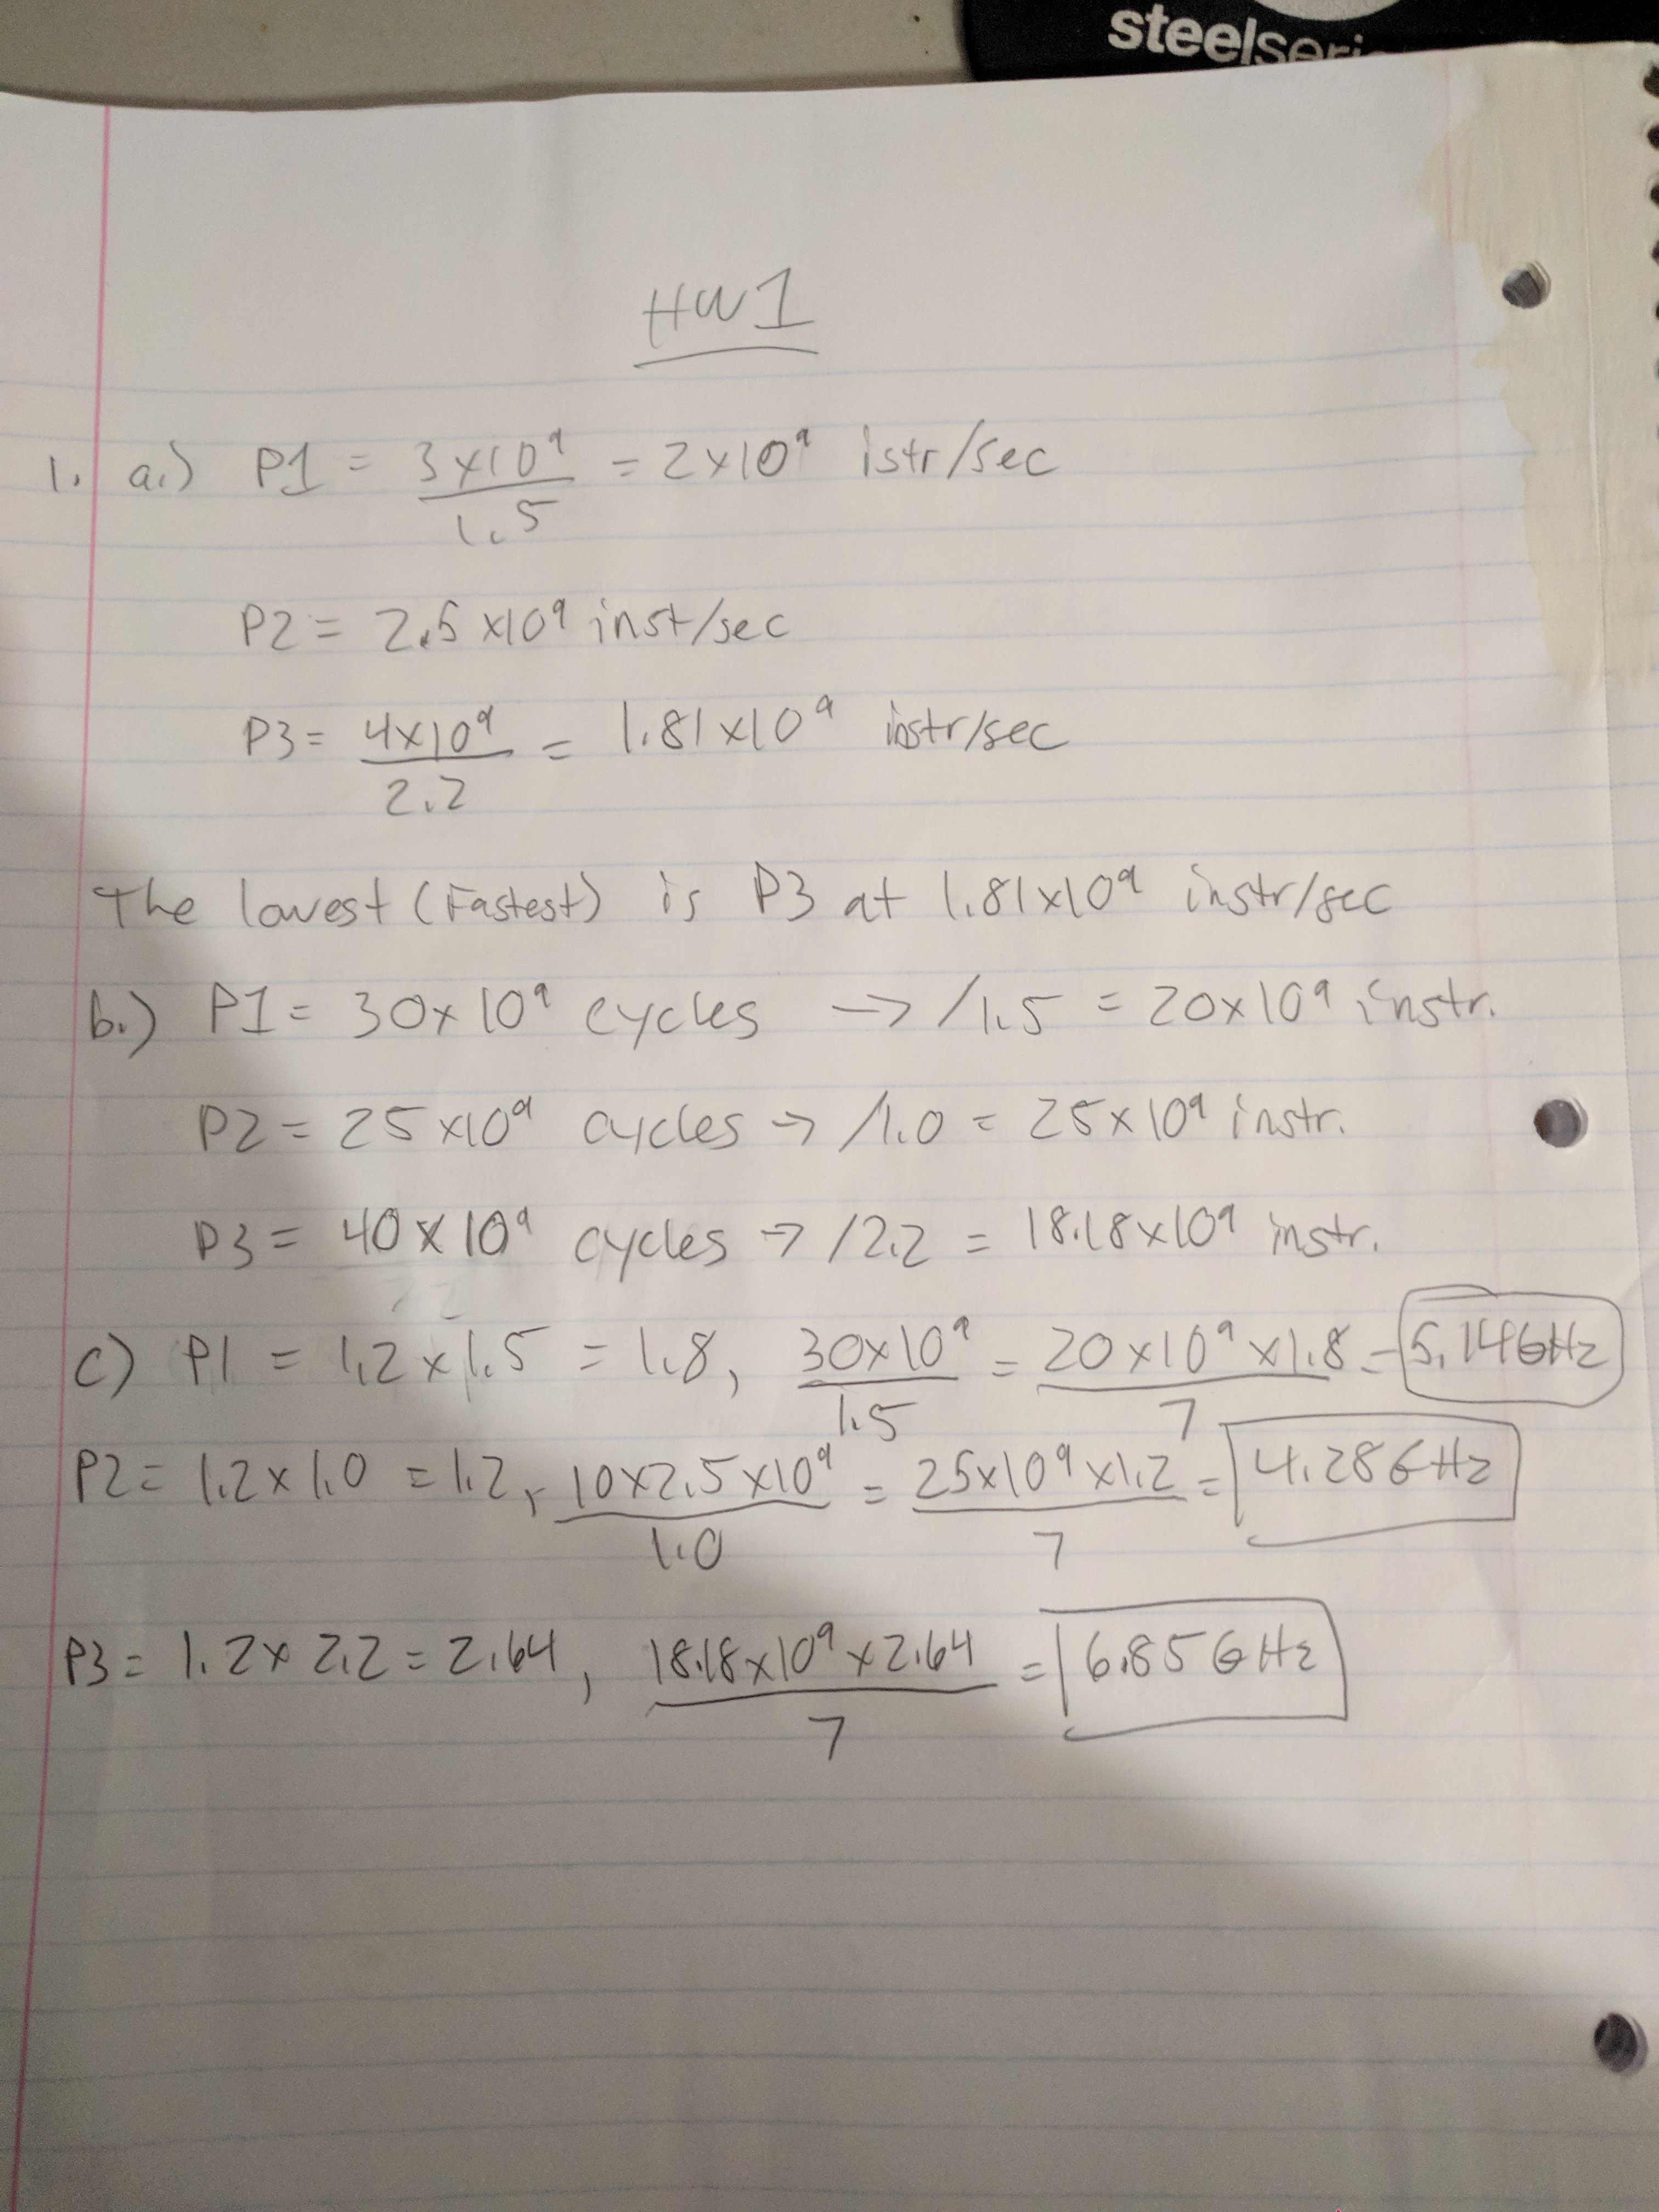 steelseri
HW1
1. a.) P1 = 3x10⁹ / 1.5 = 2x10⁹ istr/sec
P2 = 2.5 x10⁹ inst/sec
P3 = 4x10⁹ / 2.2 = 1.81x10⁹ instr/sec
The lowest (Fastest) is P3 at 1.81x10⁹ instr/sec
b.) P1 = 30x10⁹ cycles → /1.5 = 20x10⁹ instr.
P2 = 25x10⁹ cycles → /1.0 = 25x10⁹ instr.
P3 = 40x10⁹ cycles → /2.2 = 18.18x10⁹ instr.
c) P1 = 1.2x1.5 = 1.8, 30x10⁹ / 1.5 = 20x10⁹x1.8 / 7 = 5.14GHz
P2 = 1.2x1.0 = 1.2, 10x2.5x10⁹ / 1.0 = 25x10⁹x1.2 / 7 = 4.28GHz
P3 = 1.2x2.2 = 2.64, 18.18x10⁹x2.64 / 7 = 6.85GHz